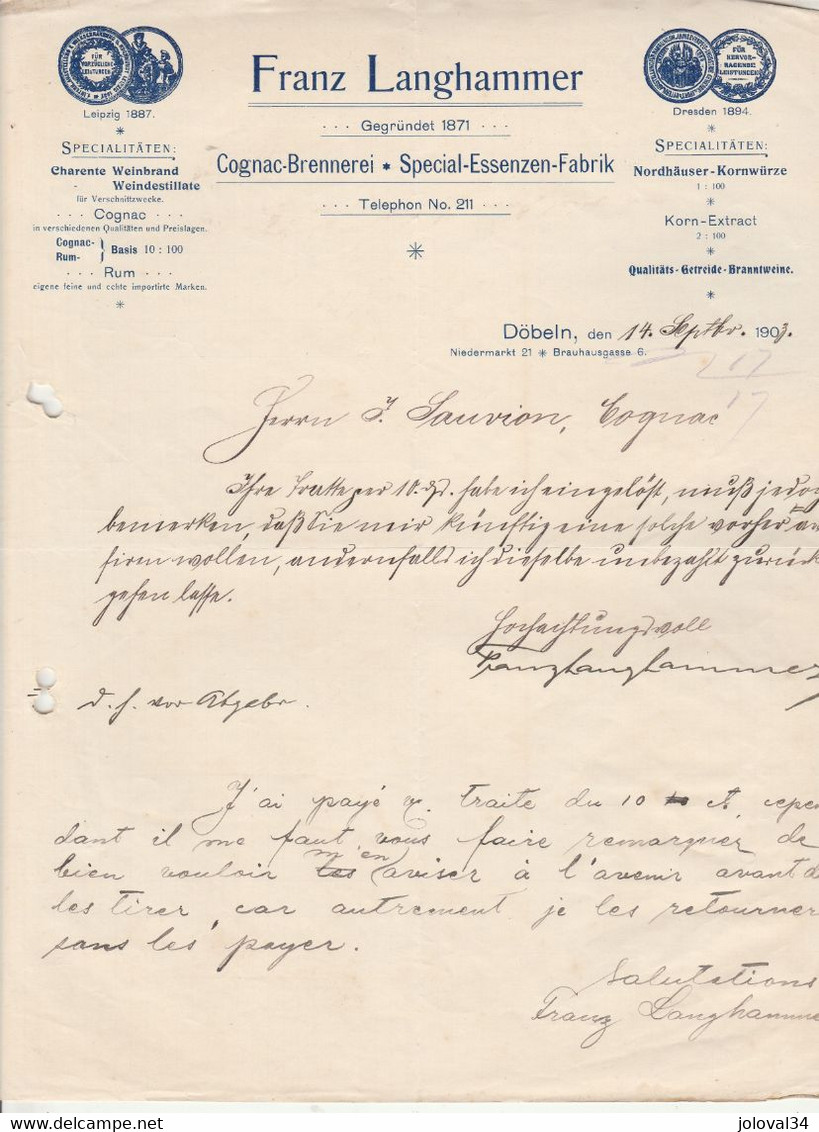 Franz Langhammer
Gegründet 1871
Cognac-Brennerei * Special-Essenzen-Fabrik
Telephon No. 211
FÜR VORZÜGLICHE LEISTUNGEN
Leipzig 1887.
SPECIALITÄTEN:
Charente Weinbrand
" Weindestillate
für Verschnittzwecke.
Cognac
in verschiedenen Qualitäten und Preislagen.
Cognac- } Basis 10 : 100
Rum-
Rum
eigene feine und echte importirte Marken.
FÜR HERVOR-RAGENDE LEISTUNGEN
Dresden 1894.
SPECIALITÄTEN:
Nordhäuser-Kornwürze
1 : 100
Korn-Extract
2 : 100
Qualitäts-Getreide-Branntweine.
Döbeln, den 14. Septbr. 1903.
Niedermarkt 21 * Brauhausgasse 6.
Herrn J. Sauvion, Cognac
Ihre Tratte per 10. ds. habe ich eingelöst, muß jedoc
bemerken, daß Sie mir künftig eine solche vorher av
siren wollen, andernfalls ich dieselbe unbezahlt zurück
gehen lasse.
Hochachtungsvoll
Franz Langhammer
d. h. vor Abgabe.
J'ai payé v. traite du 10 ct, cepen
dant il me faut vous faire remarquer de
bien vouloir m'en aviser à l'avenir avant d
les tirer, car autrement je les retourner
sans les payer.
Salutations
Franz Langhamme
delcampe.net
joloval34